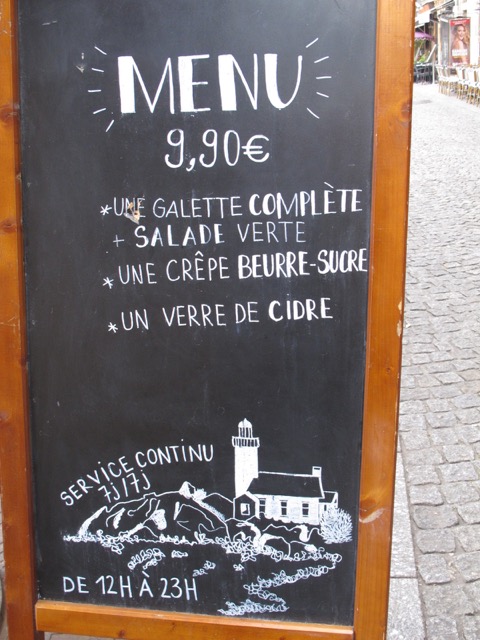 MENU
9,90€
*UNE GALETTE COMPLÈTE
+ SALADE VERTE
*UNE CRÊPE BEURRE-SUCRE
*UN VERRE DE CIDRE
SERVICE CONTINU
7j/7j
DE 12H À 23H